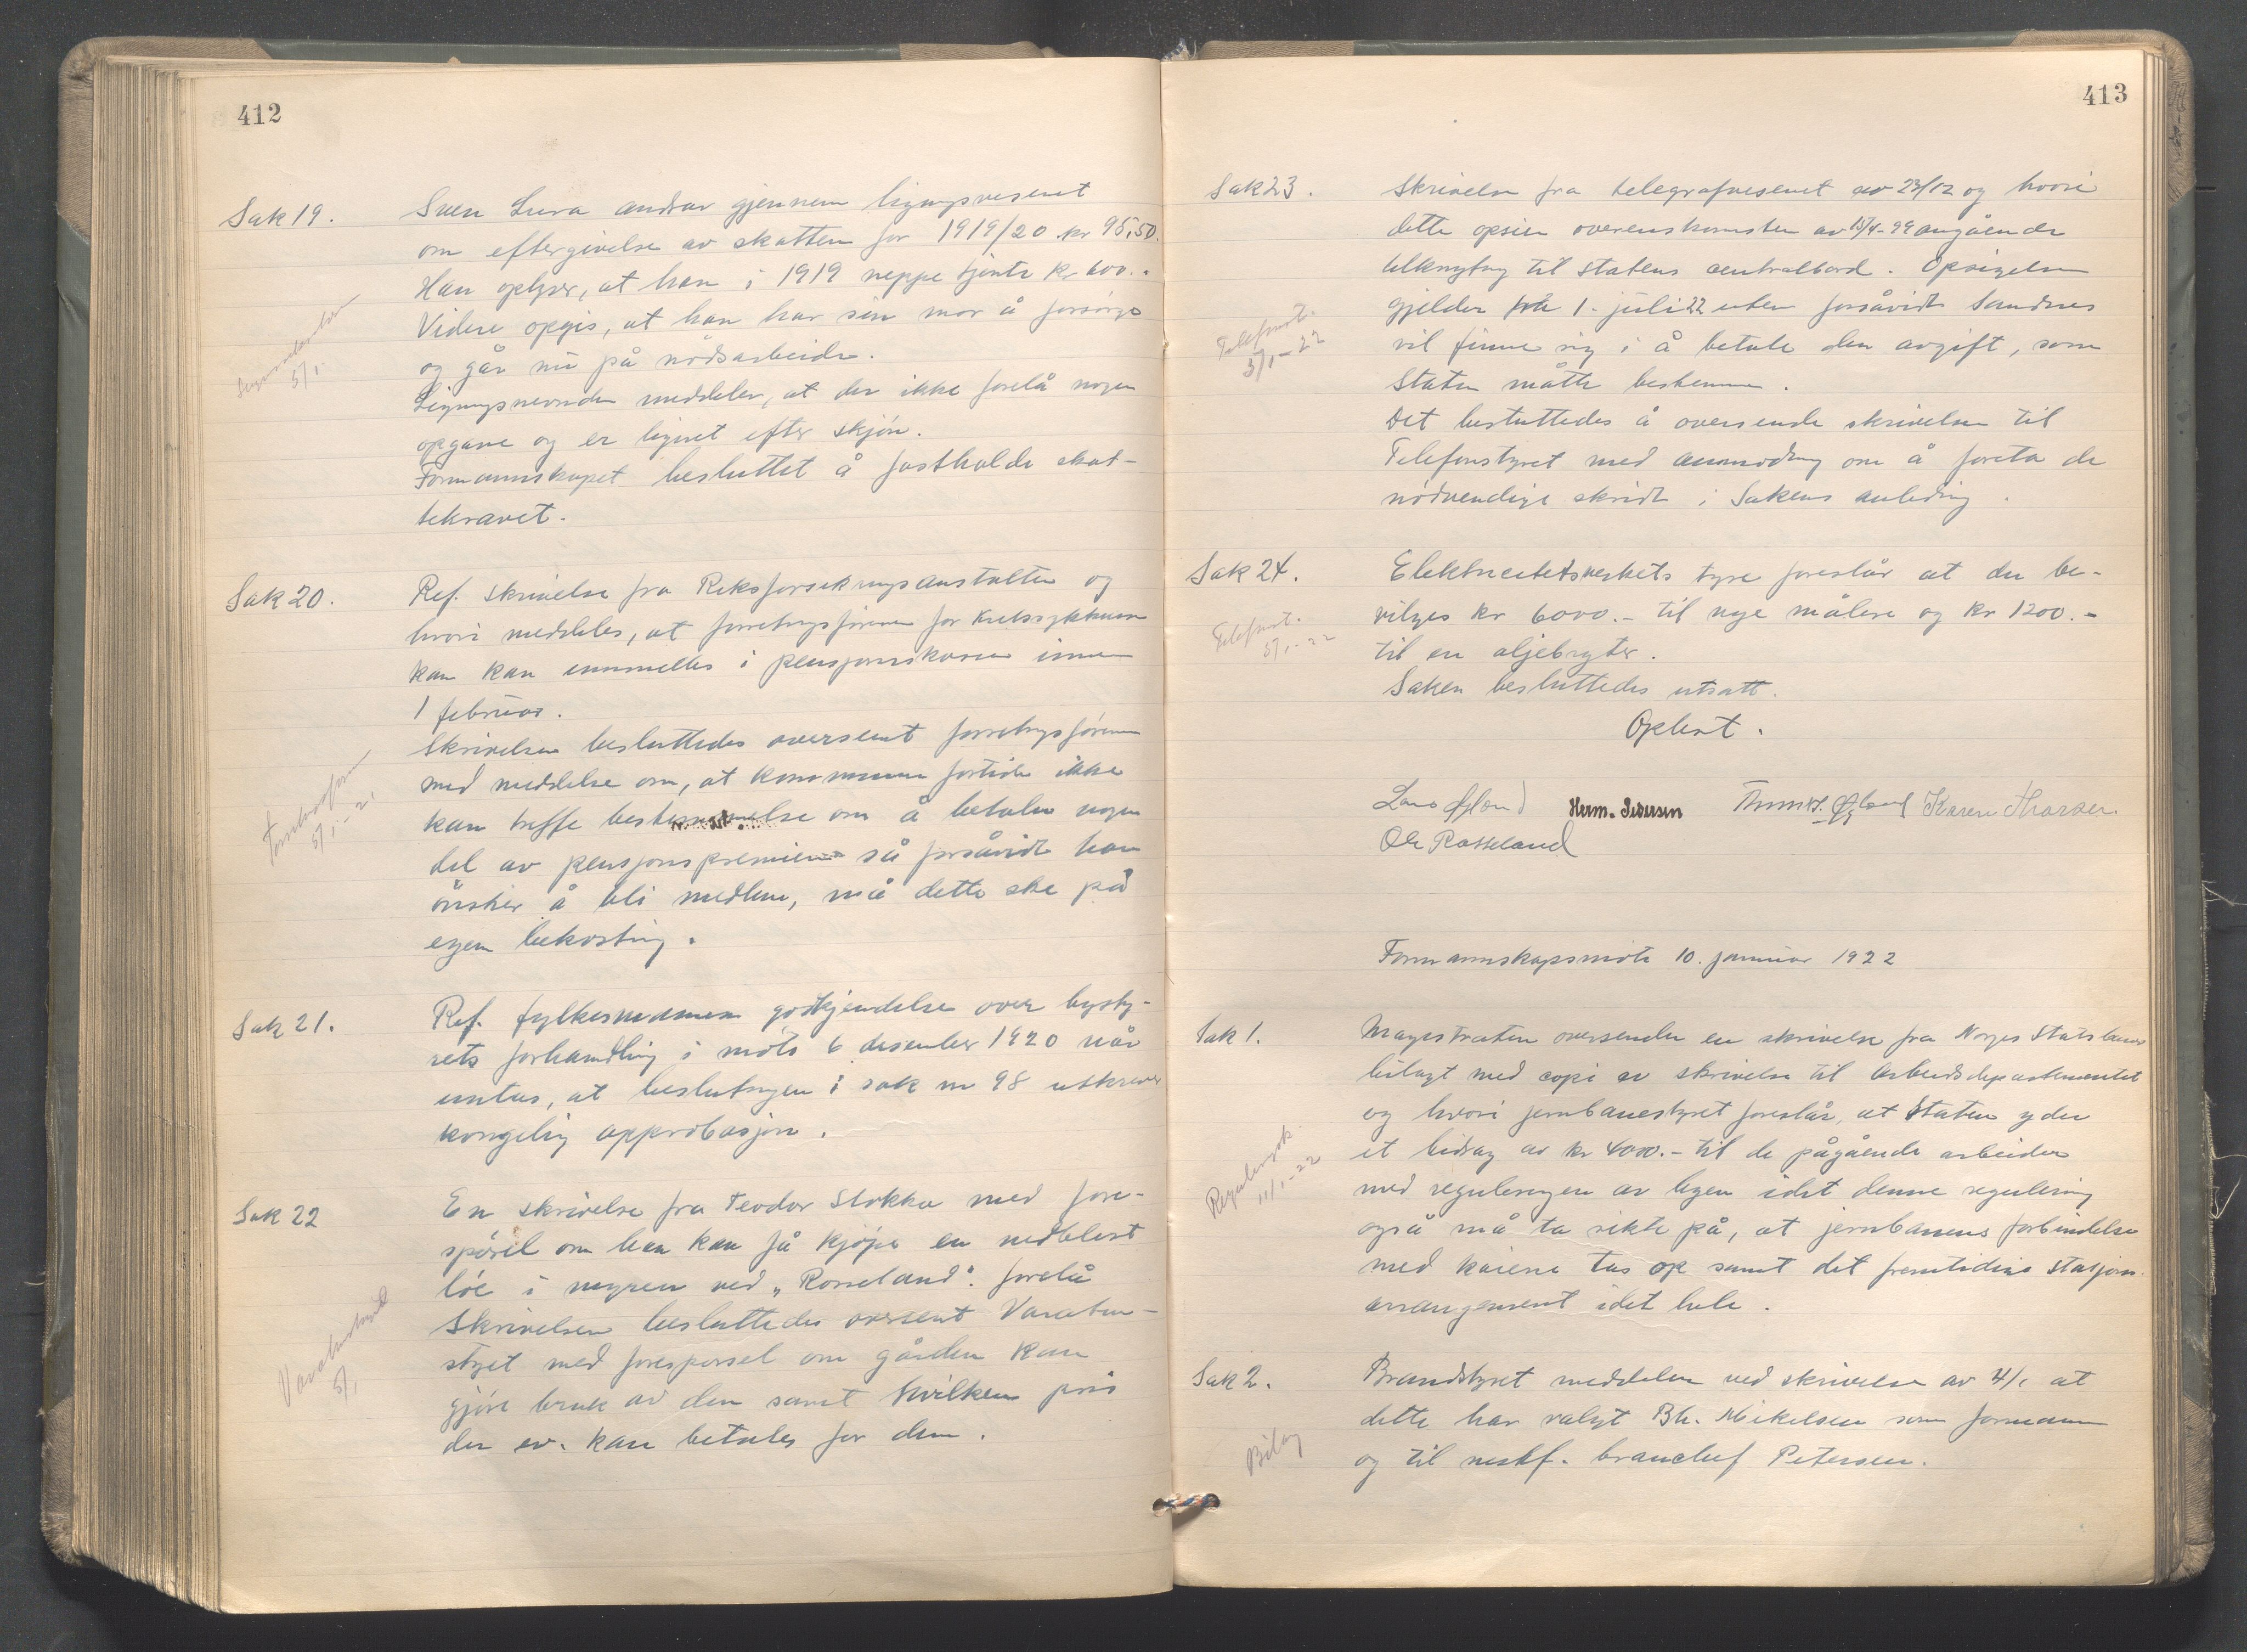 412
Sak 19.
Sven Lura andrar gjennem ligningsvesenet
om eftergivelse av skatten for 1919/20 kr 95,50.
Han oplyser, at han i 1919 neppe tjente kr 600.-
Videre opgis, at han har sin mor å forsörge
og går nu på nödsarbeide.
5/1.
Ligningsnevnden meddeler, at der ikke forelå nogen
opgave og er lignet efter skjön.
Formannskapet besluttet å fastholde skat-
tekravet.
Sak 20.
Ref. skrivelse fra Riksforsikringsanstalten og
hvori meddeles, at forretningsföreren for Kretssykekassen
kan kan innmeldes i pensjonskassen innen
1 februar.
Skrivelsen besluttedes oversent forretningsföreren
med meddelelse om, at kommunen fortiden ikke
kan treffe bestemmelse om å betale nogen
Forretningsföreren
5/1-21
del av pensjonspremien så forsåvidt han
önsker å bli medlem, må dette ske på
egen bekostning.
Sak 21.
Ref. fylkesmannens godkjendelse over bysty-
rets forhandling i möte 6 desember 1920 når
untas, at beslutningen i sak nr 98 utkrever
kongelig approbasjon.
Sak 22
En skrivelse fra Teodor Stokka med fore-
spörsel om han kan få kjöpe en nedblest
löe i myren ved "Rosseland". forelå
Skrivelsen besluttedes oversent Vanatun-
styret med forespörsel om gården kan
5/1
gjöre bruk av den samt hvilken pris
der ev. kan betales for den.
413
Sak 23.
Skrivelse fra telegrafvesenet av 23/12 og hvori
dette opsier overenskomsten av 15/4-99 angående
tilknytning til statens centralbord. Opsigelsen
gjelder fra 1. juli 22 uten forsåvidt Sandnes
Telefonst.
5/1-22
vil finne sig i å betale den avgift, som
Staten måtte bestemme.
Det besluttedes å oversende skrivelsen til
Telefonstyret med anmodning om å foreta de
nödvendige skridt i Sakens anledning.
Sak 24.
Elektricitetsverkets styre foreslår at der be-
vilges kr 6000.- til nye målere og kr 1200.-
Telefonst.
5/1-22
til en oljebryter.
Saken besluttedes utsatt.
Oplest.
Lars Øgland Herm. Pedersen Øgland Karen Thorsen
Ole Rosseland
Formannskapsmöte 10. januar 1922
Sak 1.
Magistraten oversender en skrivelse fra Norges Statsbaner
bilagt med copi av skrivelse til Arbeidsdepartementet
og hvori jernbanestyret foreslår, at Staten yder
et bidrag av kr 4000.- til de pågående arbeider
Reguleringsk.
11/1-22
med reguleringen av byen idet denne regulering
også må ta sikte på, at jernbanens forbindelse
med kaiene tas op samt det fremtidige stasjons-
arrangement i det hele.
Sak 2.
Brandstyret meddeler ved skrivelse av 4/1 at
dette har valgt Bh. Mikelsen som formann
Bilag
og til nestf. brandchef Petersen.